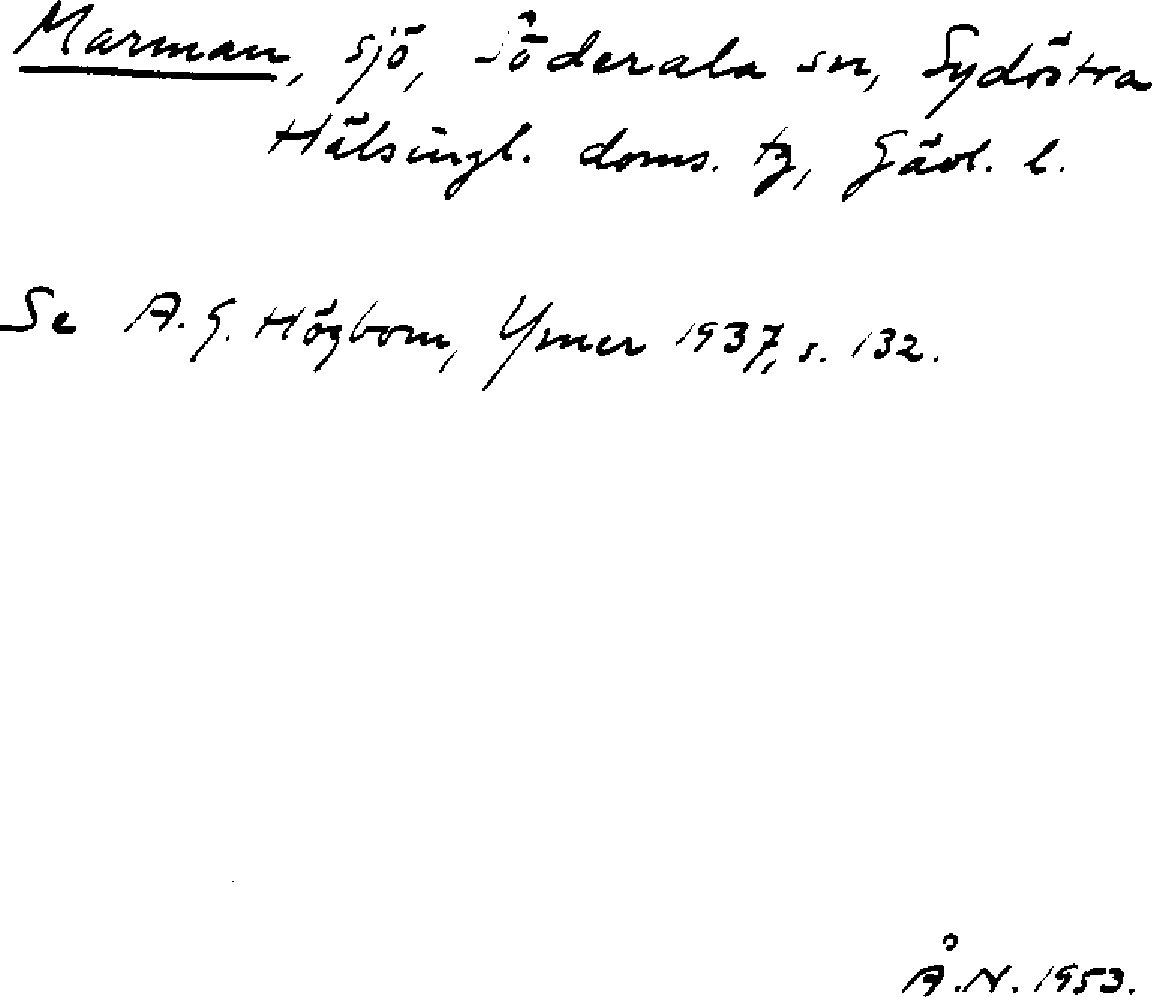 Marman, sjö, Söderala sn, Sydöstra
Hälsingl. doms. tg, Gävl. l.
Se A.G. Högbom, Ymer 1937, s. 132.
Å.N. 1953.